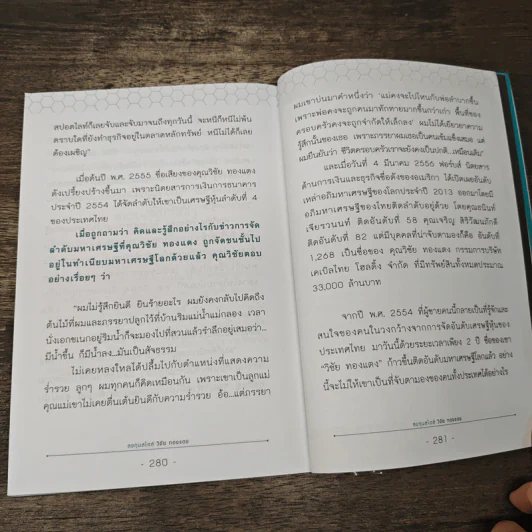 สปอตไลท์ก็เลยจับและจับมาจนถึงทุกวันนี้ จะหนีก็หนีไม่พ้น
ตราบใดที่ยังทำธุรกิจอยู่ในตลาดหลักทรัพย์ หนีไม่ได้ก็เลย
ต้องเผชิญ"
เมื่อต้นปี พ.ศ. 2555 ชื่อเสียงของคุณวิชัย ทองแตง
ดังเปรี้ยงปร้างขึ้นมา เพราะนิตยสารการเงินการธนาคาร
ประจำปี 2554 ได้จัดลำดับให้เขาเป็นเศรษฐีหุ้นลำดับที่ 4
ของประเทศไทย
เมื่อถูกถามว่า คิดและรู้สึกอย่างไรกับข่าวการจัด
ลำดับมหาเศรษฐีที่คุณวิชัย ทองแตง ถูกจัดขนชั้นไป
อยู่ในทำเนียบมหาเศรษฐีโลกด้วยแล้ว คุณวิชัยตอบ
อย่างเรื่อยๆ ว่า
"ผมไม่รู้สึกยินดี ยินร้ายอะไร ผมยังคงกลับไปคิดถึง
ต้นไม้ที่ผมและภรรยาปลูกไว้ที่บ้านริมแม่น้ำแม่กลอง เวลา
นั่งเอกเขนกอยู่ริมน้ำก็จะมองไปที่สวนแล้วรำลึกอยู่เสมอว่า...
มีน้ำขึ้น ก็มีน้ำลง...มันเป็นสัจธรรม
ไม่เคยหลงใหลได้ปลื้มไปกับตำแหน่งที่แสดงความ
ร่ำรวย ลูกๆ ผมทุกคนก็คิดเหมือนกัน เพราะเขาเป็นลูกแม่
คุณแม่เขาไม่เคยตื่นเต้นยินดีกับความร่ำรวย อ้อ...แต่ภรรยา
วิชัย ทองแตง
- 280 -
ผมเขาบ่นมาคำหนึ่งว่า 'แม่คงจะไปไหนกับพ่อลำบากขึ้น
เพราะพ่อคงจะถูกคนมาทักทายมากขึ้นกว่าเก่า พื้นที่ของ
ครอบครัวคงจะถูกจำกัดให้เล็กลง' ผมไม่ได้เยียวยาความ
รู้สึกนั้นของเธอ เพราะภรรยาผมเธอเป็นคนเข้มแข็งเสมอ แต่
ผมยืนยันว่า ชีวิตครอบครัวเราจะยังคงเป็นปกติ...เหมือนเดิม"
และเมื่อวันที่ 4 มีนาคม 2556 ฟอร์บส์ นิตยสาร
ด้านการเงินและธุรกิจชื่อดังของอเมริกา ได้เปิดเผยอันดับ
เหล่าอภิมหาเศรษฐีของโลกประจำปี 2013 ออกมาโดยมี
อภิมหาเศรษฐีของไทยติดลำดับอยู่ด้วย โดยคุณธนินท์
เจียรวนนท์ ติดอันดับที่ 58 คุณเจริญ สิริวัฒนภักดี
ติดอันดับที่ 82 แต่มีบุคคลที่น่าจับตามองก็คือ อันดับที่
1,268 เป็นชื่อของ คุณวิชัย ทองแตง กรรมการบริษัท
เคเบิลไทย โฮลดิ้ง จำกัด ที่มีทรัพย์สินทั้งหมดประมาณ
33,000 ล้านบาท
จากปี พ.ศ. 2554 ที่ผู้ชายคนนี้กลายเป็นที่รู้จักและ
สนใจของคนในวงกว้างจากการจัดอันดับเศรษฐีหุ้นของ
ประเทศไทย มาวันนี้ด้วยระยะเวลาเพียง 2 ปี ชื่อของเขา
"วิชัย ทองแตง" ก้าวขึ้นติดอันดับมหาเศรษฐีโลกแล้ว อย่าง
นี้จะไม่ให้เขาเป็นที่จับตามองของคนทั้งประเทศได้อย่างไร
วิชัย ทองแตง
- 281 -